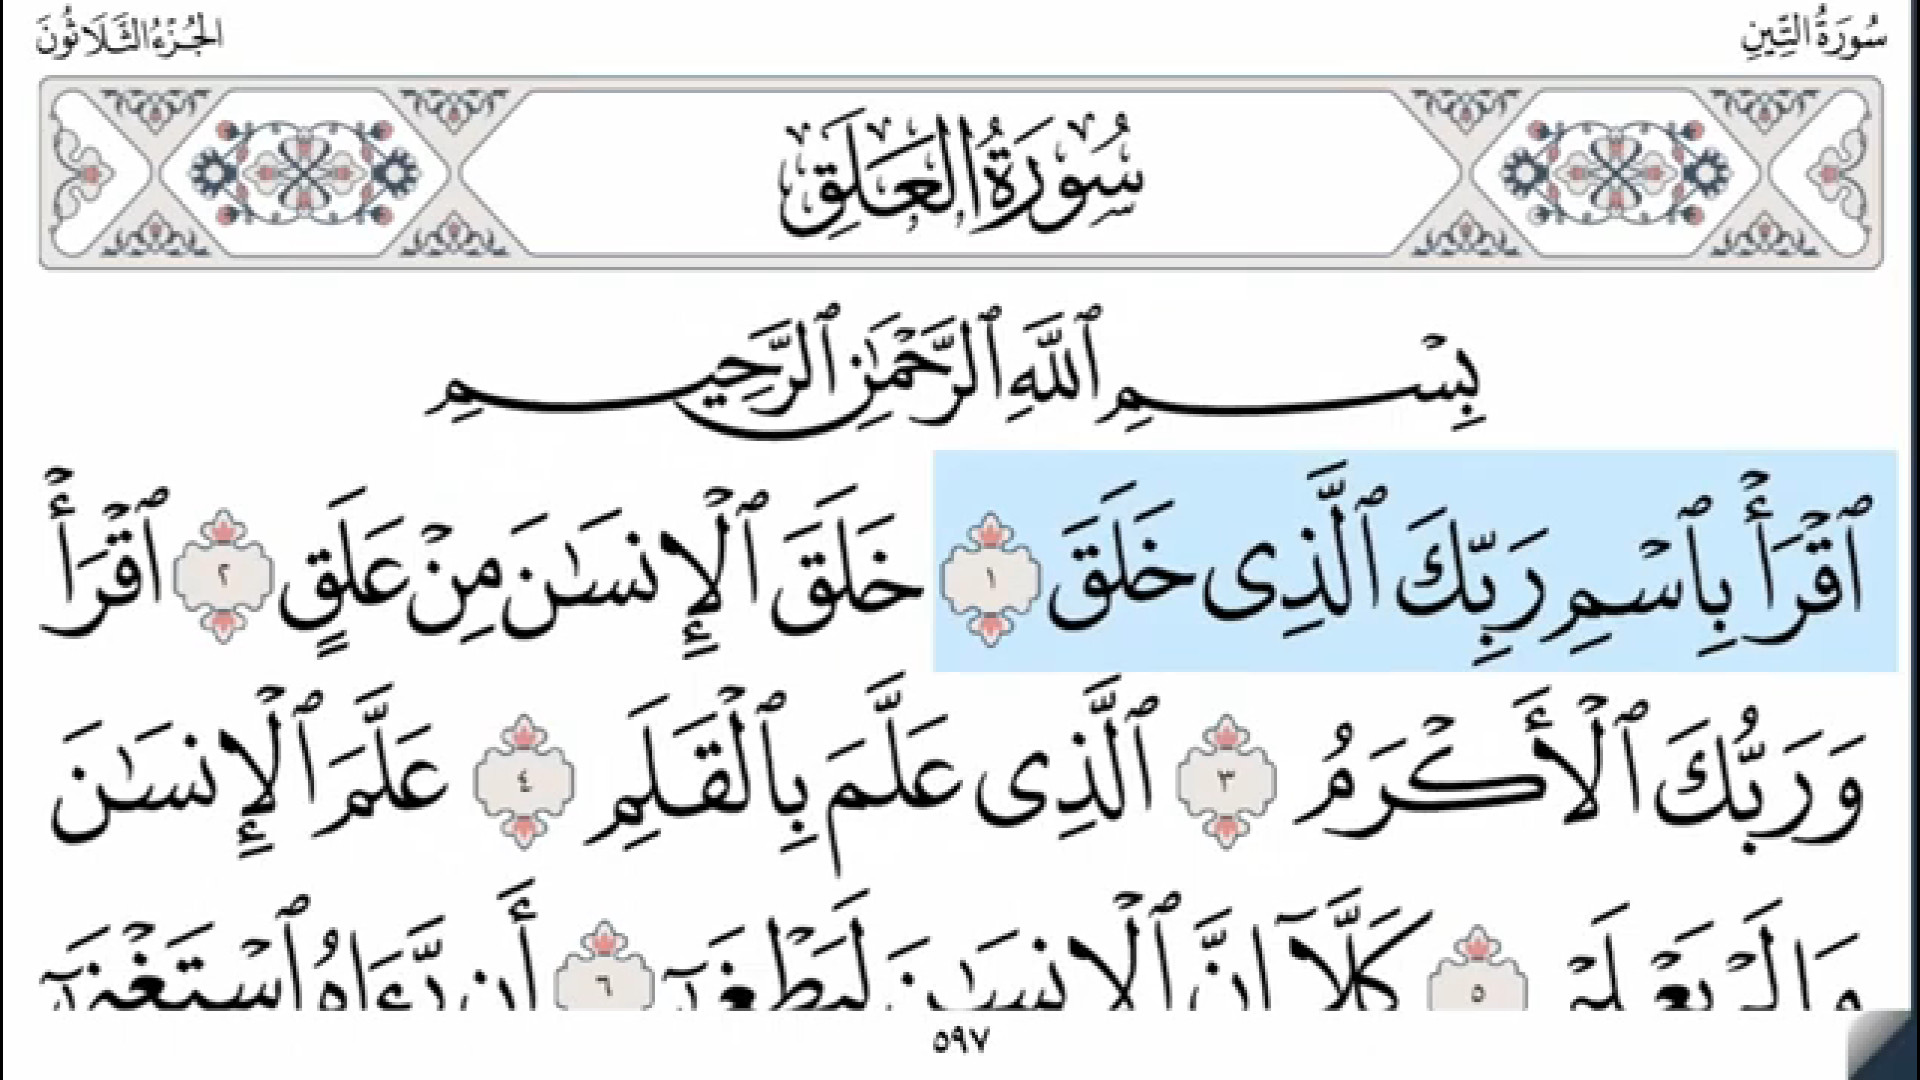 سُورَةُ التِّينِ
الجُزْءُ الثَّلَاثُونَ
سُورَةُ العَلَقِ
بِسْمِ ٱللَّهِ ٱلرَّحْمَٰنِ ٱلرَّحِيمِ
ٱقْرَأْ بِٱسْمِ رَبِّكَ ٱلَّذِى خَلَقَ ١ خَلَقَ ٱلْإِنسَٰنَ مِنْ عَلَقٍ ٢ ٱقْرَأْ
وَرَبُّكَ ٱلْأَكْرَمُ ٣ ٱلَّذِى عَلَّمَ بِٱلْقَلَمِ ٤ عَلَّمَ ٱلْإِنسَٰنَ
مَا لَمْ يَعْلَمْ ٥ كَلَّآ إِنَّ ٱلْإِنسَٰنَ لَيَطْغَىٰٓ ٦ أَن رَّءَاهُ ٱسْتَغْنَىٰٓ
٥٩٧